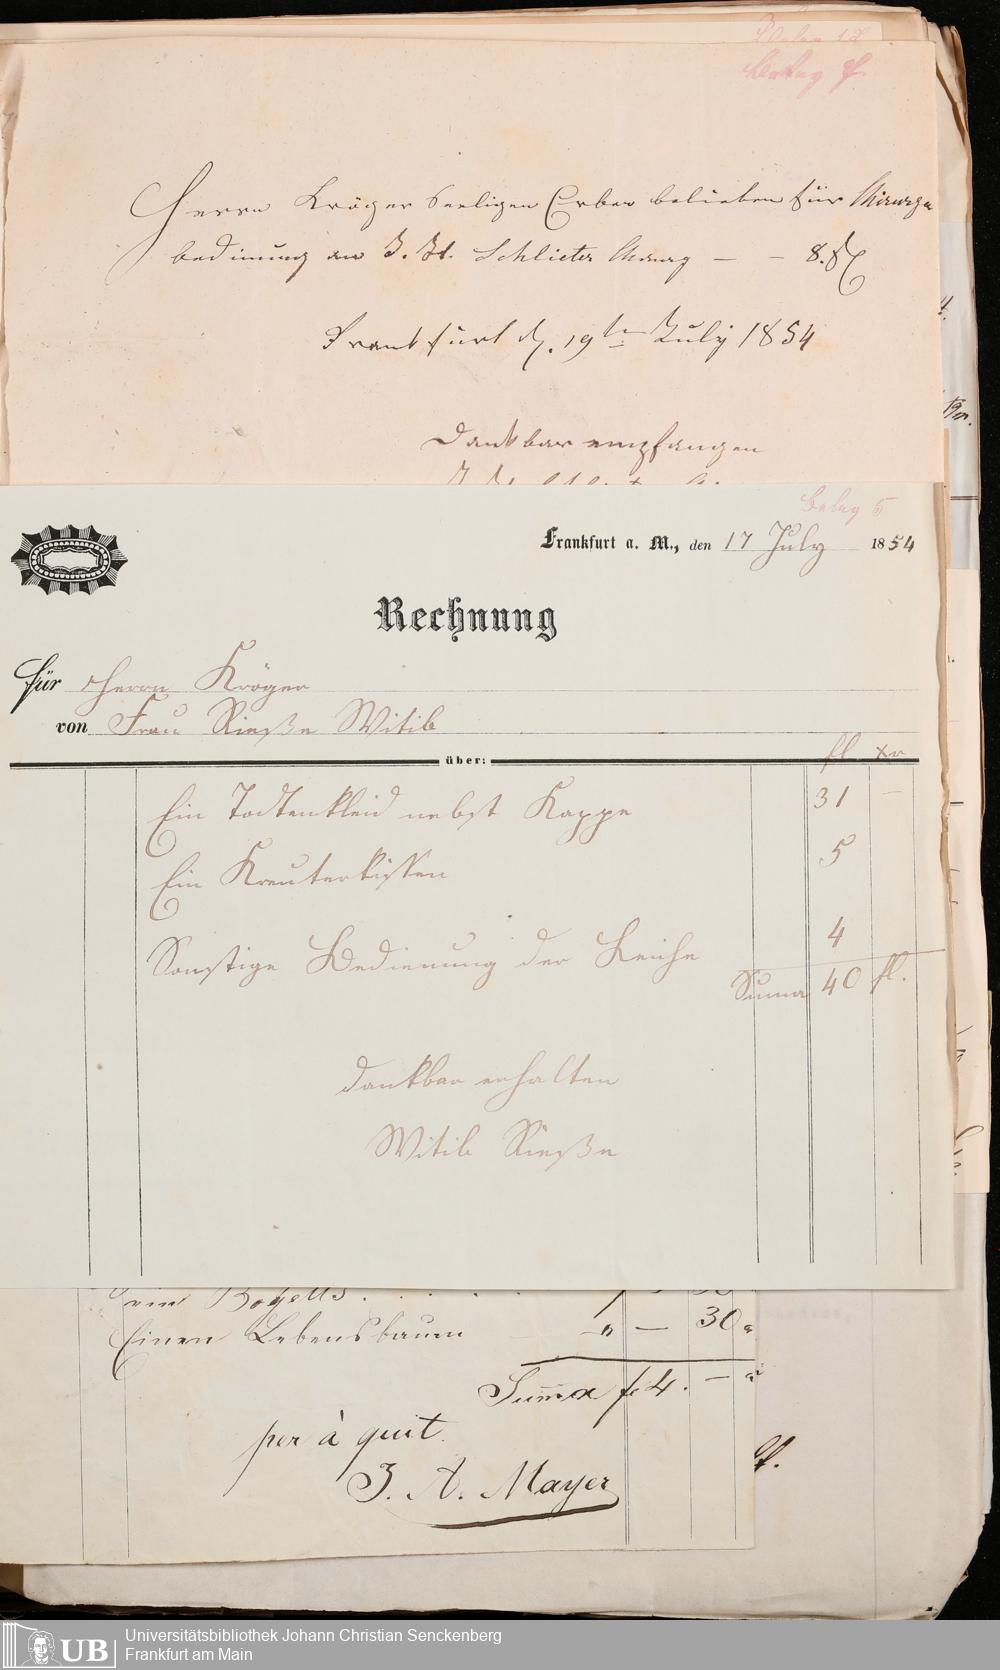 Herrn Kröger Seeligen Erben belieben für Chirurgen
bedinung an J. H. Schlieter Chirurg — — 8. fl
Frankfurt d. 19ten July 1854
Dankbar empfangen
Beleg 5
Frankfurt a. M., den 17 July 1854
Rechnung
für Herrn Kröger
von Frau Rieße Witib
über:
fl xr
Ein Todtenkleid nebst Kappe 31 —
Ein Kreuterkißen 5
Sonstige Bedienung der Leiche 4
Suma 40 fl.
dankbar erhalten
Witib Rieße
Einen Lebensbaum — " — 30 "
Summa fl 4. — "
per à quit.
J. A. Mayer
UB
Universitätsbibliothek Johann Christian Senckenberg
Frankfurt am Main